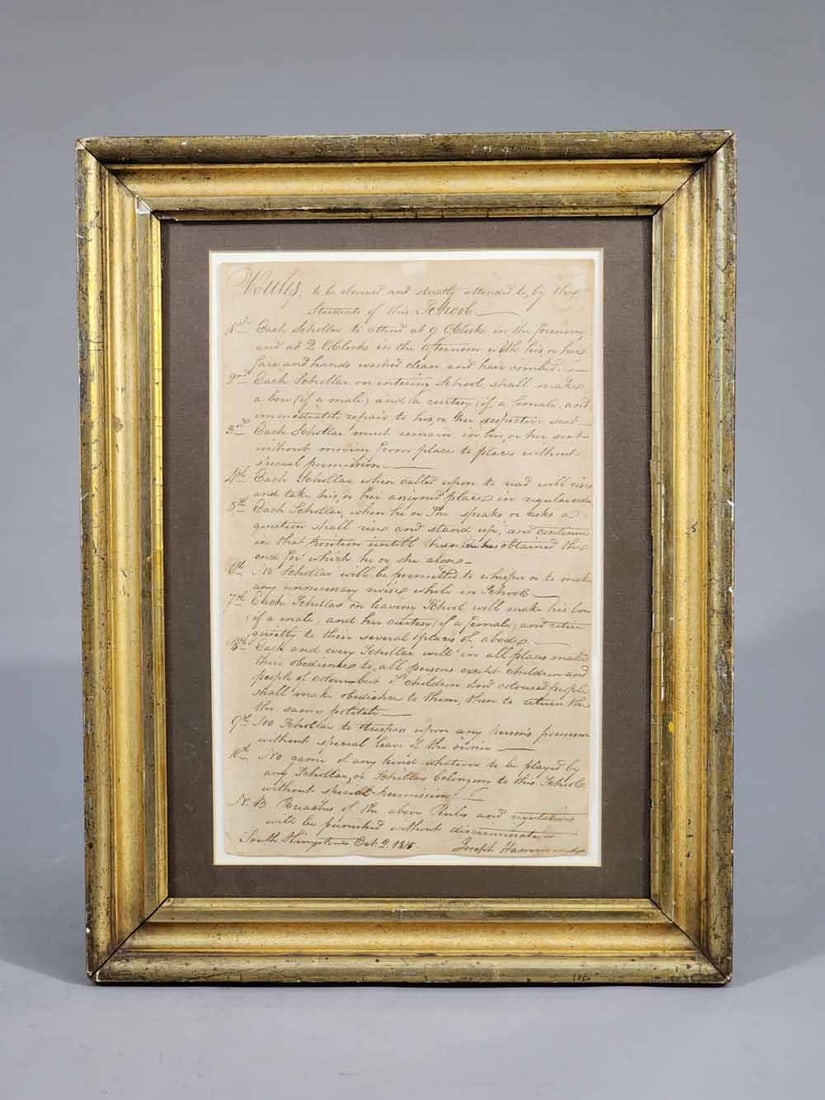 Rules, to be observed and strictly attended to, by the
Students of this School
1st Each Schollar to attend at 9 OClock in the forenoon
and at 2 OClock in the afternoon with his or her
face and hands washed clean and hair combed.
2nd Each Schollar on entering School, shall make
a bow (if a male) and a curtesy (if a female) and
immediately repair to his or her respective seat
3rd Each Schollar must remain in his, or her seat
without moving from place to place without
special permission
4th Each Schollar when called upon to read will rise
and take his, or her assigned place in regular order
5th Each Schollar, when he or she speaks or asks a
question shall rise and stand up, and continue
in that position untill has obtained the
end for which he or she arose
6th No Schollar will be permitted to whisper or to make
any unnecessary noise while in School
7th Each Schollar on leaving School will make his bow
(if a male) and her curtesy (if a female) and retire
directly to their several places of abode
8th Each and every Schollar will in all places make
their obedience to all persons except children and
people of colour but if children and coloured people
shall make obedience to them, then to return the
the same
9th No Schollar to trespass upon any persons
without special leave of the owner
10th No game of any kind whatever to be played by
any Schollar, or Schollars belonging to this School
without special permission
N.B Breaches of the above Rules and regulations
will be punished without discrimination
South Oct. 2. 1815 Joseph